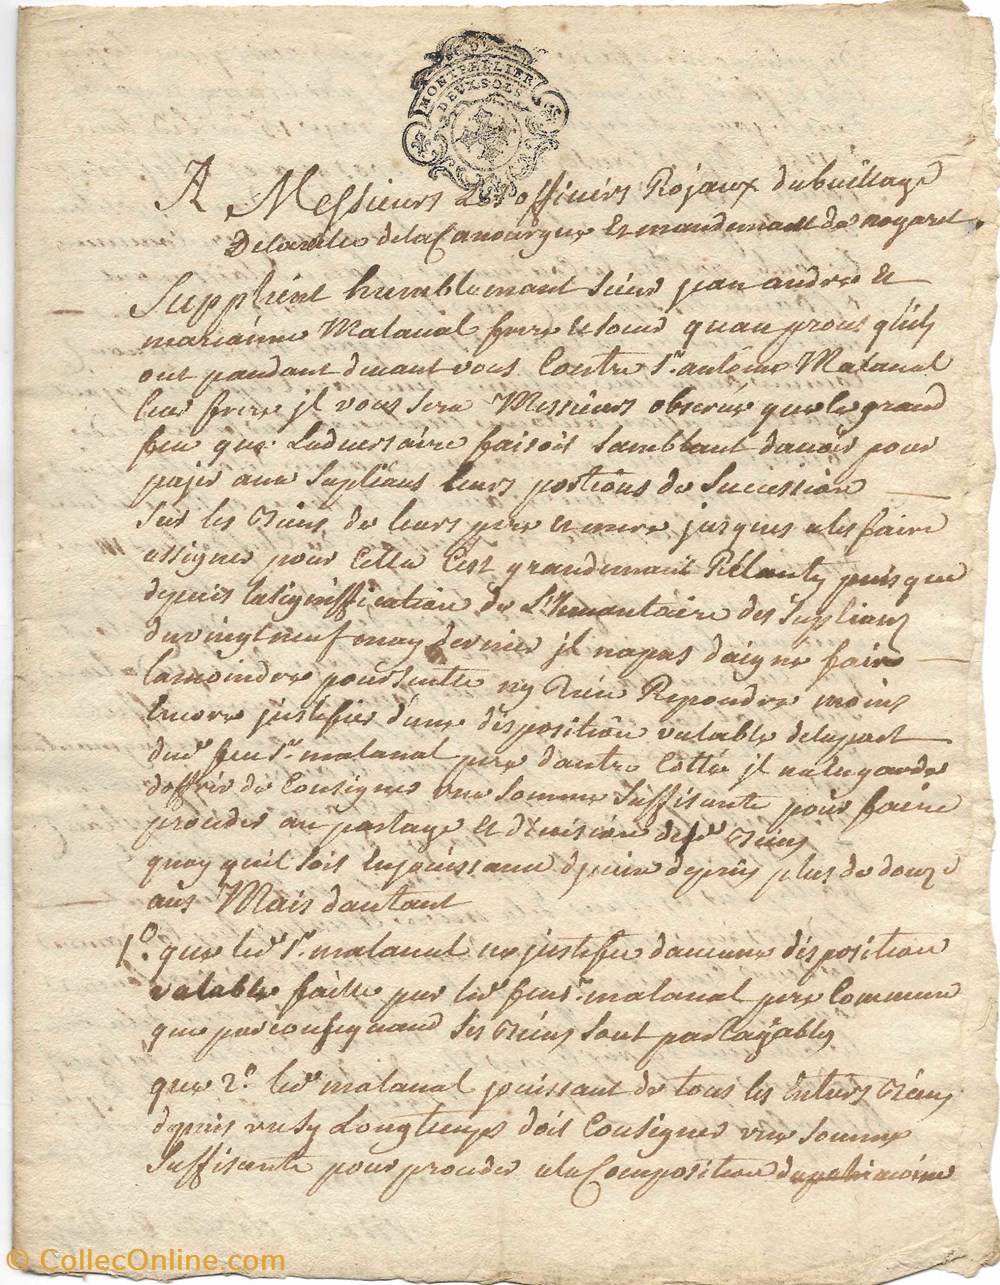 G. D.
MONTPELLIER
DEUX SOLS
A Messieurs Les officiers Royaux du bailliage
De la ville de la Canourgue Et mandement de nogaret
Supplient humblement Sieur jean andre Et
marianne Malaval frere et soeur qu'au procès qu'ils
ont pandant devant vous Contre Sr. antoine Malaval
leur frere jl vous sera Messieurs observé que le grand
feu que Ladversaire faisoit samblant d'avoir pour
payer aux Suplians leurs portions de Succession
Sur les Biens de leurs pere et mere jusques a les faire
assigner pour Cella C'est grandement puis que
depuis la signiffication de L'Inventaire des Suplians
du vingt neuf may dernier jl n'a pas daigné faire
la moindre poursuitte ny Rien Repondre moins
Encore justifier d'une disposition valable de la part
dud. feu Sr. malaval pere d'autre Cotté jl n'a eu garde
d'offrir de Consigner une Somme Suffisante pour faire
proceder au partage et division desd. Biens
quoy qu'il soit En jouissance depuis plus de douze
ans Mais d'autant
1o. que led. Sr. malaval ne justifie d'aucune disposition
valable faitte par led. feu Sr. malaval pere Commun
que par consequand Ses Biens sont partageables
que 2o. led. malaval jouissant de tous les Entiers Biens
depuis Longtemps doit Consigner une somme
Suffisante pour proceder a la Composition du patrimoine
© CollecOnline.com